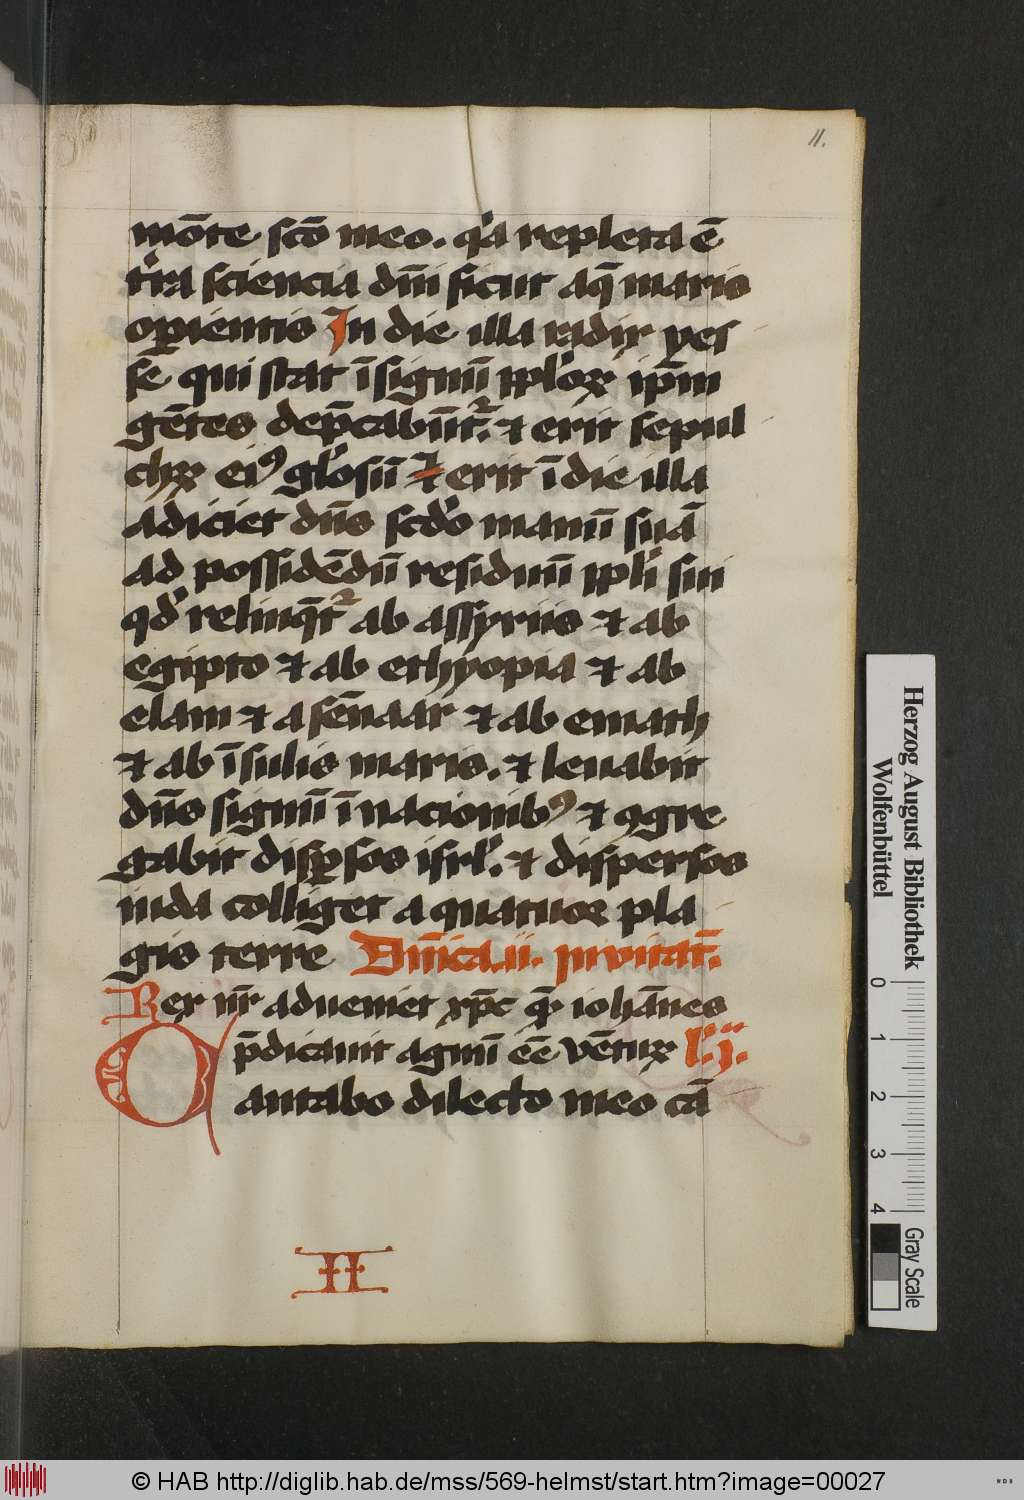 11.
mo̅te sc̅o meo. qͥa repleta e̅
tͥra sciencia dn̅i sicut aq̅ maris
oꝑientis In die illa radix yes
se̅ qui stat i̅ signu̅ ppl'oꝝ ip̅m
ge̅tes dep̅cabu̅tᷣ. ⁊ erit sepul
chꝝ eiꝰ gl'osu̅ ⁊ erit i̅ die illa
adiciet dn̅s scd'o manu̅ sua̅
ad posside̅du̅ residuu̅ ppl'i sui
qd' relinq̅tᷣ ab assyriis ⁊ ab
egipto ⁊ ab ethyopia ⁊ ab
elam ⁊ a se̅naar ⁊ ab emath
⁊ ab i̅sulis maris. ⁊ leuabit
dn̅s signu̅ i̅ nacionibꝰ ⁊ ꝯgre
gabit disꝑsos isrl'. ⁊ dispersos
iuda colliget a quatuor pla
gis terre Dn̅ica.ii. Inuitat̅.
Rex nr̅ adueniet xp̅c que̅ ioha̅nes
p̅dicauit agnu̅ ee̅ ve̅tuꝝ l'.j.
Cantabo dilecto meo ca̅
II
Herzog August Bibliothek
Wolfenbüttel
0 1 2 3 4
Gray Scale
© HAB http://diglib.hab.de/mss/569-helmst/start.htm?image=00027